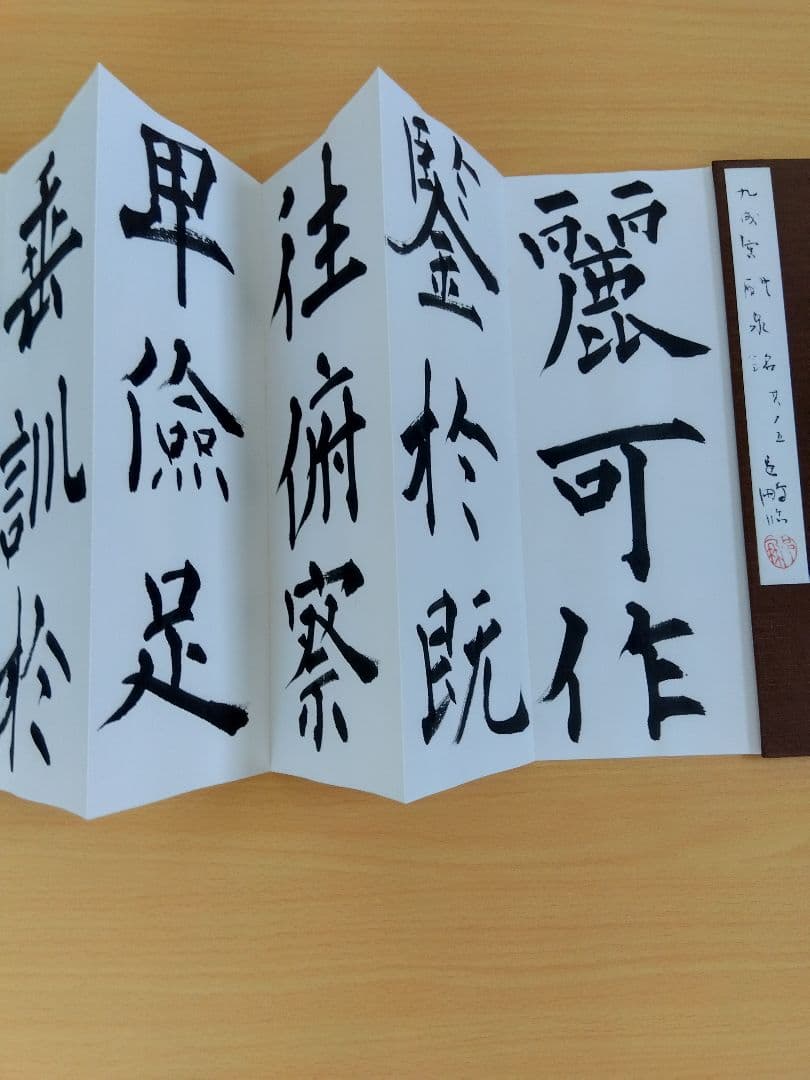 九成宮醴泉銘 其ノ五 臨
麗可作
鑒於既
往俯察
卑儉足
垂訓於